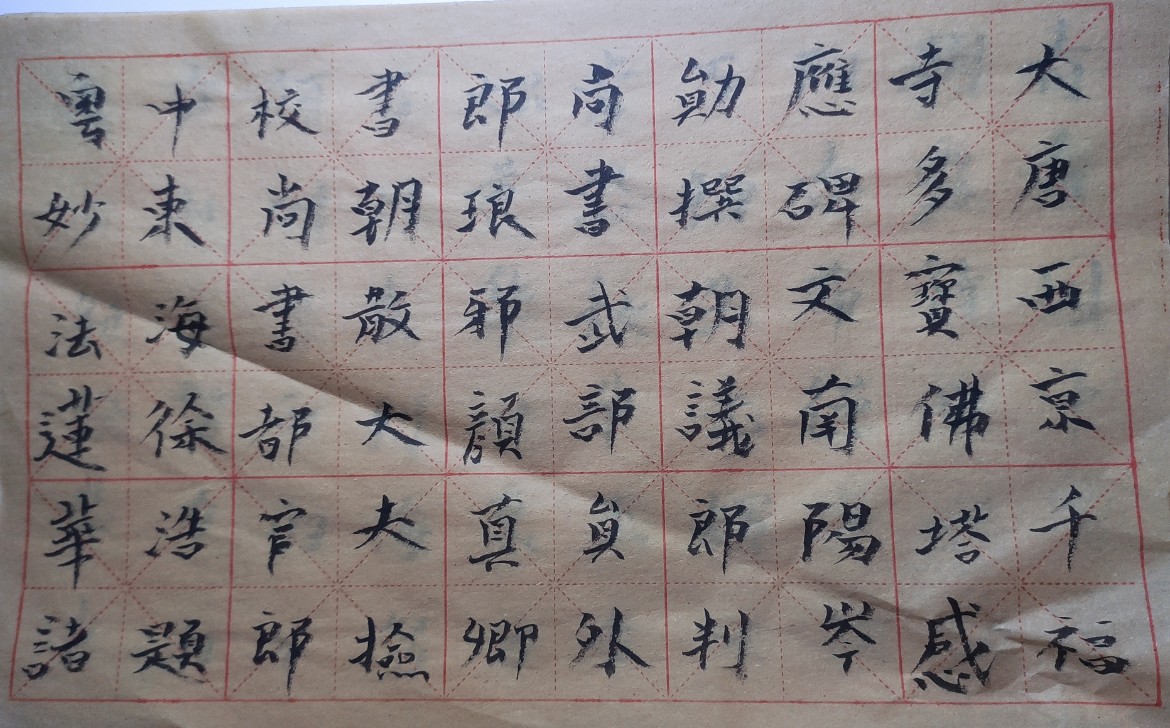 大唐西京千福
寺多寶佛塔感
應碑文南陽岑
勛撰朝議郎判
尚書武部員外
郎琅邪顏真卿
書朝散大夫撿
校尚書都官郎
中東海徐浩題
粵妙法蓮華諸